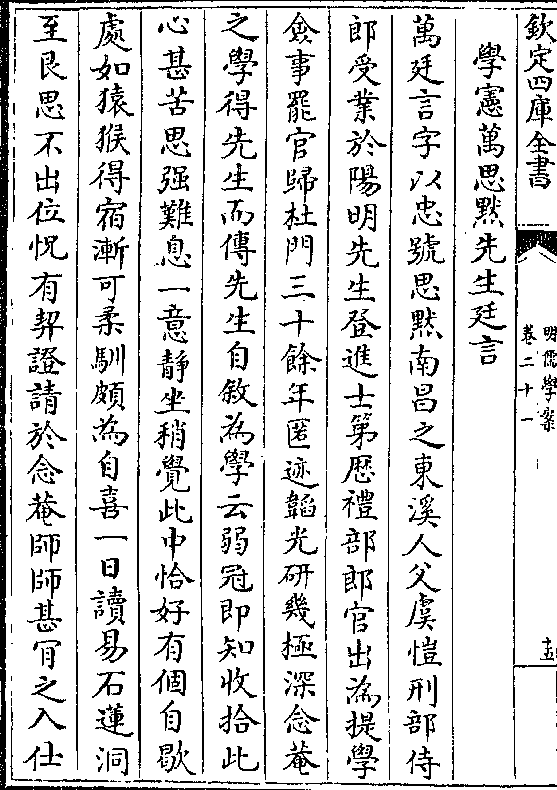 欽定四庫全書
明儒學案
卷二十一
十五
學憲萬思默先生廷言
萬廷言字以忠號思默南昌之東溪人父虞愷刑部侍
郎受業於陽明先生登進士第歷禮部郎官出為提學
僉事罷官歸杜門三十餘年匿迹韜光研幾極深念菴
之學得先生而傳先生自敘為學云弱冠即知收拾此
心甚苦思强難息一意靜坐稍覺此中恰好有個自歇
處如猿猴得宿漸可柔馴頗為自喜一日讀易石蓮洞
至艮思不出位怳有契證請於念菴師師甚肎之入仕